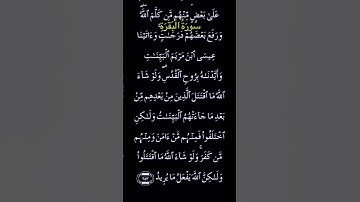 عَلَىٰ بَعْضٍ مِّنْهُم مَّن كَلَّمَ ٱللَّهُ
سورة البقرة
وَرَفَعَ بَعْضَهُمْ دَرَجَـٰتٍ وَءَاتَيْنَا
عِيسَى ٱبْنَ مَرْيَمَ ٱلْبَيِّنَـٰتِ
وَأَيَّدْنَـٰهُ بِرُوحِ ٱلْقُدُسِ وَلَوْ شَآءَ
ٱللَّهُ مَا ٱقْتَتَلَ ٱلَّذِينَ مِنۢ بَعْدِهِم مِّنۢ
بَعْدِ مَا جَآءَتْهُمُ ٱلْبَيِّنَـٰتُ وَلَـٰكِنِ
ٱخْتَلَفُوا۟ فَمِنْهُم مَّنْ ءَامَنَ وَمِنْهُم
مَّن كَفَرَ وَلَوْ شَآءَ ٱللَّهُ مَا ٱقْتَتَلُوا۟
وَلَـٰكِنَّ ٱللَّهَ يَفْعَلُ مَا يُرِيدُ